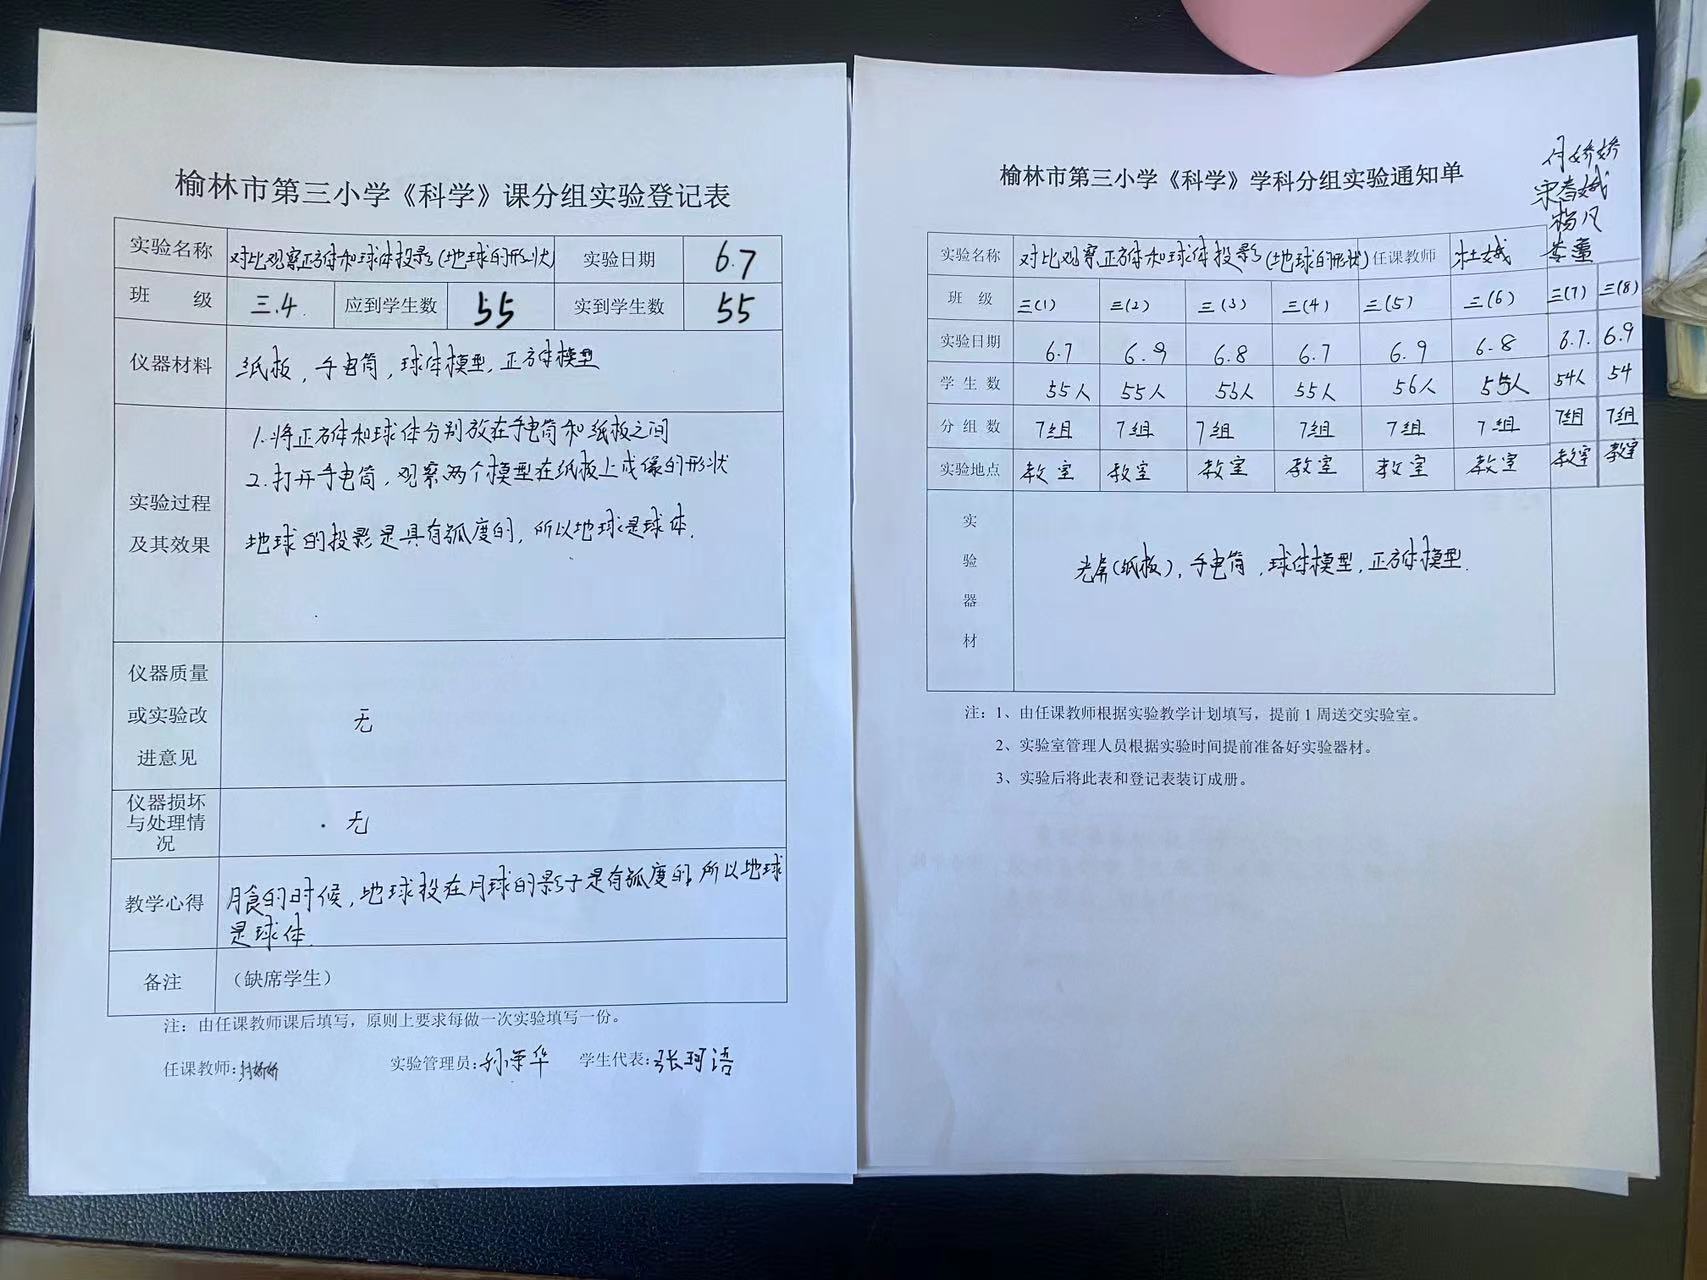 榆林市第三小学《科学》课分组实验登记表
实验名称 对比观察正方体和球体投影(地球的形状) 实验日期 6.7
班 级 三.4 应到学生数 55 实到学生数 55
仪器材料 纸板，手电筒，球体模型，正方体模型
实验过程
及其效果
1.将正方体和球体分别放在手电筒和纸板之间
2.打开手电筒，观察两个模型在纸板上成像的形状
地球的投影是具有弧度的，所以地球是球体.
仪器质量
或实验改
进意见
无
仪器损坏
与处理情
况
无
教学心得
月食的时候，地球投在月球的影子是有弧度的,所以地球
是球体.
备注 （缺席学生）
注：由任课教师课后填写，原则上要求每做一次实验填写一份。
任课教师: 实验管理员: 学生代表:张珂语
榆林市第三小学《科学》学科分组实验通知单
杨凡
实验名称 对比观察正方体和球体投影(地球的形状) 任课教师 杜娥
班 级 三(1) 三(2) 三(3) 三(4) 三(5) 三(6) 三(7) 三(8)
实验日期 6.7 6.9 6.8 6.7 6.9 6.8 6.7. 6.9
学 生 数 55人 55人 55人 55人 56人 55人 54人 54
分 组 数 7组 7组 7组 7组 7组 7组 7组 7组
实验地点 教室 教室 教室 教室 教室 教室 教室 教室
实
验
器
材
光屏(纸板)，手电筒，球体模型，正方体模型.
注：1、由任课教师根据实验教学计划填写，提前1周送交实验室。
2、实验室管理人员根据实验时间提前准备好实验器材。
3、实验后将此表和登记表装订成册。